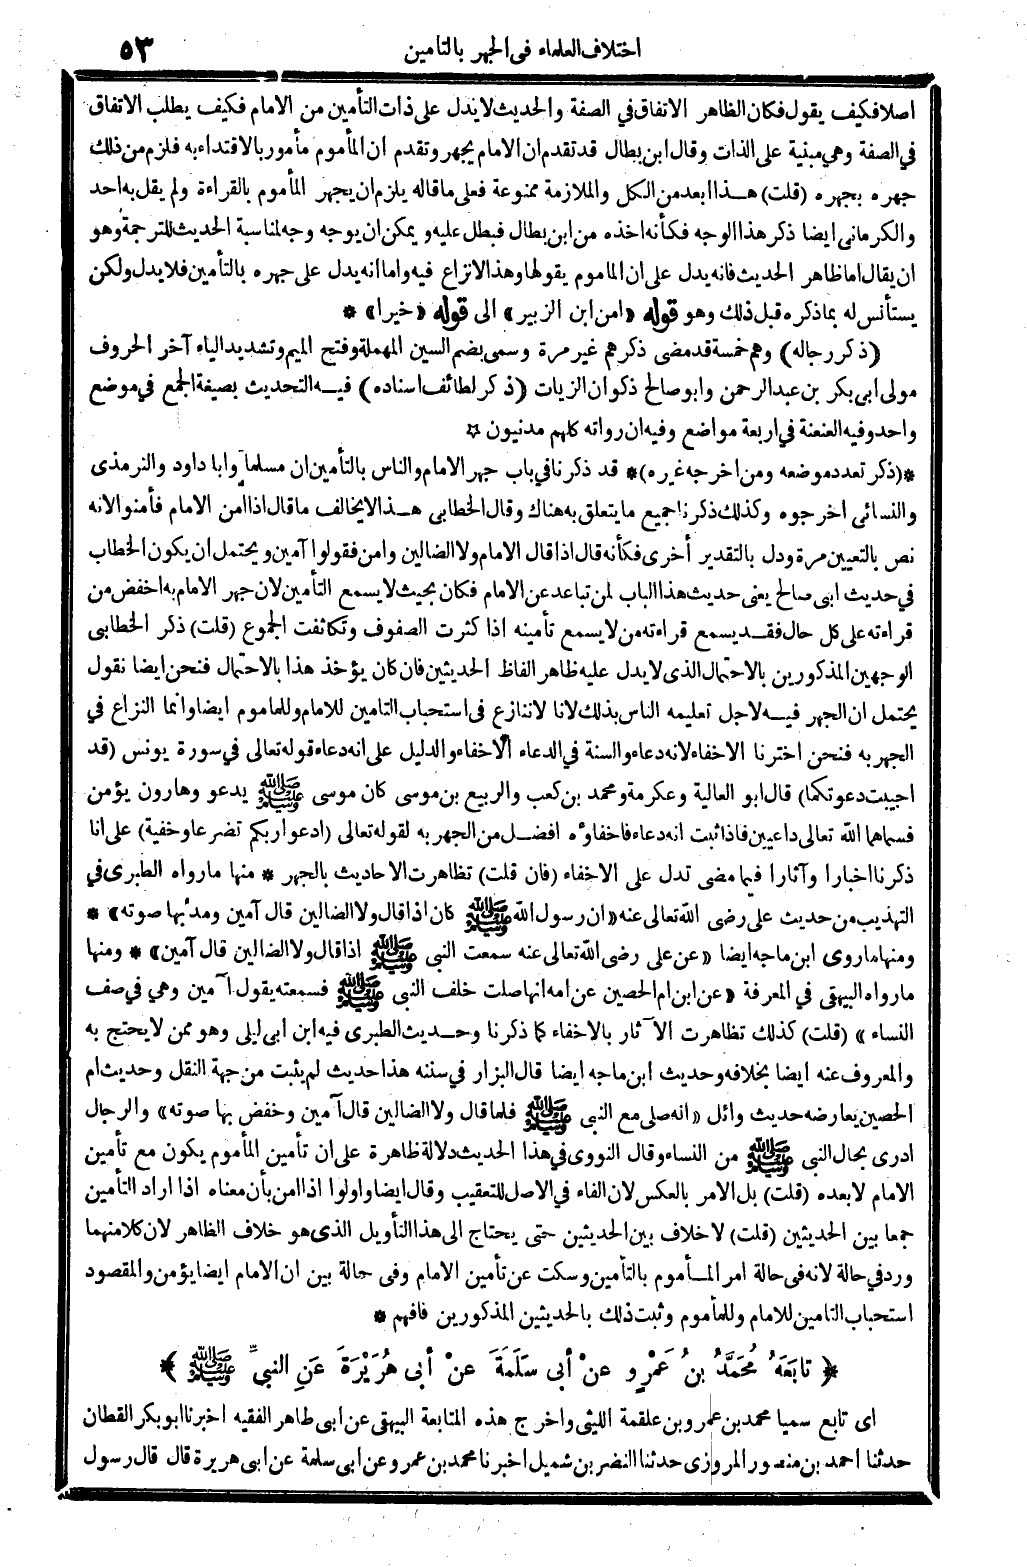 اختلاف العلماء فى الجهر بالتأمين ٥٣
اصلا فكيف يقول فكان الظاهر الاتفاق في الصفة والحديث لا يدل على ذات التأمين من الامام فكيف يطلب الاتفاق
في الصفة وهي مبنية على الذات وقال ابن بطال قد تقدم ان الامام يجهر وتقدم ان المأموم مأمور بالاقتداء به فلزم من ذلك
جهره بجهره (قلت) هذا ابعد من الكل والملازمة ممنوعة فعلى ما قاله يلزم ان يجهر المأموم بالقراءة ولم يقل به احد
والكرمانى ايضا ذكر هذا الوجه فكأنه اخذه من ابن بطال فبطل عليه ويمكن ان يوجه وجه لمناسبة الحديث للترجمة وهو
ان يقال اما ظاهر الحديث فانه يدل على ان الماموم يقولها وهذا لانزاع فيه واما انه يدل على جهره بالتأمين فلا يدل ولكن
يستأنس له بما ذكره قبل ذلك وهو قوله «امن ابن الزبير» الى قوله «خيرا» *
(ذكر رجاله) وهم خمسة قد مضى ذكرهم غير مرة وسمى بضم السين المهملة وفتح الميم وتشديد الياء آخر الحروف
مولى ابى بكر بن عبد الرحمن وابو صالح ذكوان الزيات (ذكر لطائف اسناده) فيه التحديث بصيغة الجمع في موضع
واحد وفيه العنعنة في اربعة مواضع وفيه ان رواته كلهم مدنيون ☆
*(ذكر تعدد موضعه ومن اخرجه غيره)* قد ذكرنا في باب جهر الامام والناس بالتأمين ان مسلما وابا داود والترمذى
والنسائى اخرجوه وكذلك ذكرنا جميع ما يتعلق به هناك وقال الخطابى هذا لا يخالف ما قال اذا امن الامام فأمنوا لانه
نص بالتعيين مرة ودل بالتقدير أخرى فكأنه قال اذا قال الامام ولا الضالين وامن فقولوا آمين ويحتمل ان يكون الخطاب
في حديث ابى صالح يعنى حديث هذا الباب لمن تباعد عن الامام فكان بحيث لا يسمع التأمين لان جهر الامام به اخفض من
قراءته على كل حال فقد يسمع قراءته من لا يسمع تأمينه اذا كثرت الصفوف وتكاثفت الجموع (قلت) ذكر الخطابى
الوجهين المذكورين بالاحتمال الذى لا يدل عليه ظاهر الفاظ الحديثين فان كان يؤخذ هذا بالاحتمال فنحن ايضا نقول
يحتمل ان الجهر فيه لاجل تعليمه الناس بذلك لانا لا ننازع فى استحباب التامين للامام وللماموم ايضا وانما النزاع في
الجهر به فنحن اخترنا الاخفاء لانه دعاء والسنة في الدعاء الاخفاء والدليل على انه دعاء قوله تعالى في سورة يونس (قد
اجيبت دعوتكما) قال ابو العالية وعكرمة ومحمد بن كعب والربيع بن موسى كان موسى ﷺ يدعو وهارون يؤمن
فسماهما الله تعالى داعيين فاذا ثبت انه دعاء فاخفاؤه افضل من الجهر به لقوله تعالى (ادعوا ربكم تضرعا وخفية) على انا
ذكرنا اخبارا وآثارا فيما مضى تدل على الاخفاء (فان قلت) تظاهرت الاحاديث بالجهر * منها ما رواه الطبرى في
التهذيب من حديث على رضى الله تعالى عنه «ان رسول الله ﷺ كان اذا قال ولا الضالين قال آمين ومد بها صوته» *
ومنها ما روى ابن ماجه ايضا «عن على رضى الله تعالى عنه سمعت النبى ﷺ اذا قال ولا الضالين قال آمين» * ومنها
ما رواه البيهقى في المعرفة «عن ابن ام الحصين عن امه انها صلت خلف النبى ﷺ فسمعته يقول آمين وهي في صف
النساء» (قلت) كذلك تظاهرت الآثار بالاخفاء كما ذكرنا وحديث الطبرى فيه ابن ابى ليلى وهو ممن لا يحتج به
والمعروف عنه ايضا بخلافه وحديث ابن ماجه ايضا قال البزار في سننه هذا حديث لم يثبت من جهة النقل وحديث ام
الحصين يعارضه حديث وائل «انه صلى مع النبى ﷺ فلما قال ولا الضالين قال آمين وخفض بها صوته» والرجال
ادرى بحال النبى ﷺ من النساء وقال النووى في هذا الحديث دلالة ظاهرة على ان تأمين المأموم يكون مع تأمين
الامام لا بعده (قلت) بل الامر بالعكس لان الفاء في الاصل للتعقيب وقال ايضا واولوا اذا امن بأن معناه اذا اراد التأمين
جمعا بين الحديثين (قلت) لا خلاف بين الحديثين حتى يحتاج الى هذا التأويل الذى هو خلاف الظاهر لان كلا منهما
ورد في حالة لانه فى حالة امر المأموم بالتأمين وسكت عن تأمين الامام وفى حالة بين ان الامام ايضا يؤمن والمقصود
استحباب التامين للامام وللمأموم وثبت ذلك بالحديثين المذكورين فافهم *
﴿ تابَعَهُ مُحَمَّدُ بنُ عَمْرٍو عنْ أبى سَلَمَةَ عنْ أبى هُرَيْرَةَ عَنِ النبىِّ ﷺ ﴾
اى تابع سميا محمد بن عمرو بن علقمة الليثى واخرج هذه المتابعة البيهقى عن ابى طاهر الفقيه اخبرنا ابو بكر القطان
حدثنا احمد بن منصور المروزى حدثنا النضر بن شميل اخبرنا محمد بن عمرو عن ابى سلمة عن ابى هريرة قال قال رسول